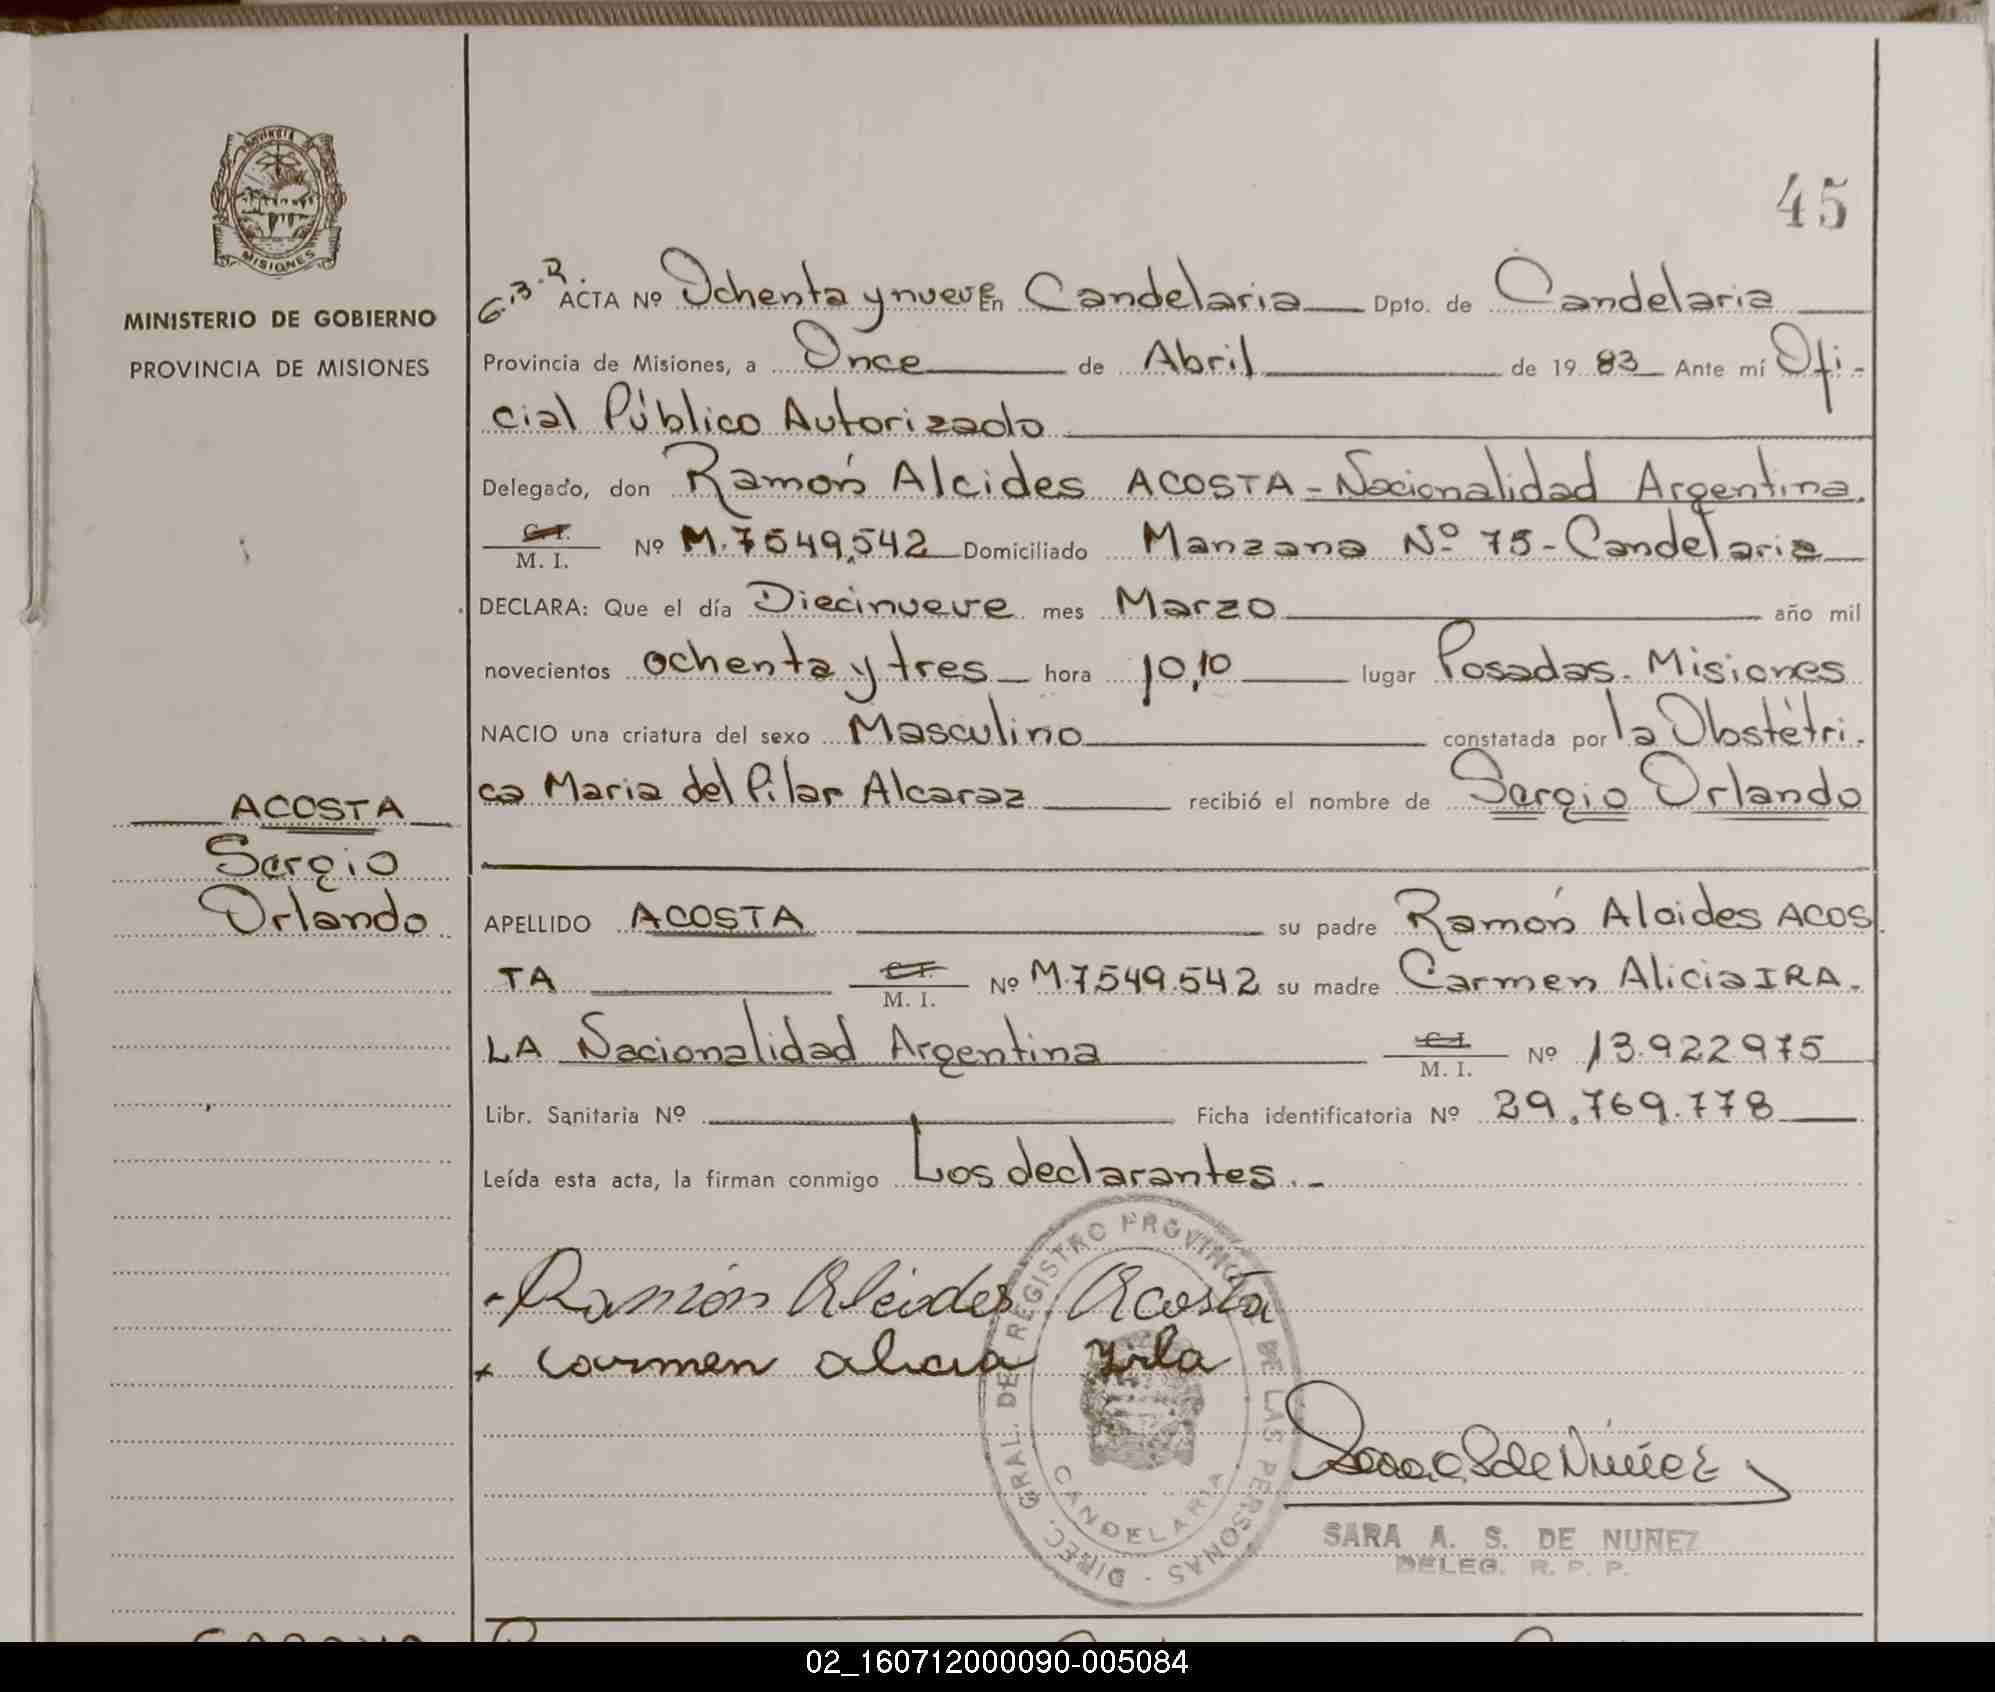 PROVINCIA
MISIONES
MINISTERIO DE GOBIERNO
PROVINCIA DE MISIONES
ACOSTA
Sergio
Orlando
45
ACTA Nº Ochenta y nueve En Candelaria Dpto. de Candelaria
Provincia de Misiones, a Once de Abril de 19 83 Ante mí Ofi-
cial Público Autorizado
Delegado, don Ramón Alcides ACOSTA - Nacionalidad Argentina.
C. I.
M. I. Nº M.7549.542 Domiciliado Manzana Nº 75 - Candelaria
DECLARA: Que el día Diecinueve mes Marzo año mil
novecientos ochenta y tres hora 10,10 lugar Posadas. Misiones
NACIO una criatura del sexo Masculino constatada por la Obstétri-
ca Maria del Pilar Alcaraz recibió el nombre de Sergio Orlando
APELLIDO ACOSTA su padre Ramón Alcides ACOS
TA C. I.
M. I. Nº M.7.549.542 su madre Carmen Alicia IRA-
LA Nacionalidad Argentina C. I.
M. I. Nº 13.922975
Libr. Sanitaria Nº Ficha identificatoria Nº 29.769.778
Leída esta acta, la firman conmigo Los declarantes.-
Ramón Alcides Acosta
Carmen alicia Irala
DIREC. GRAL. DE REGISTRO PROVINCIAL DE LAS PERSONAS -
CANDELARIA
de Nuñez
SARA A. S. DE NUÑEZ
DELEG. R. P. P.
02_160712000090-005084